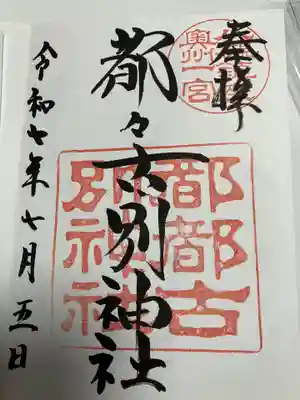 奉拝
奥州一宮
都々古別神社
都都古
別神社
令和七年七月五日